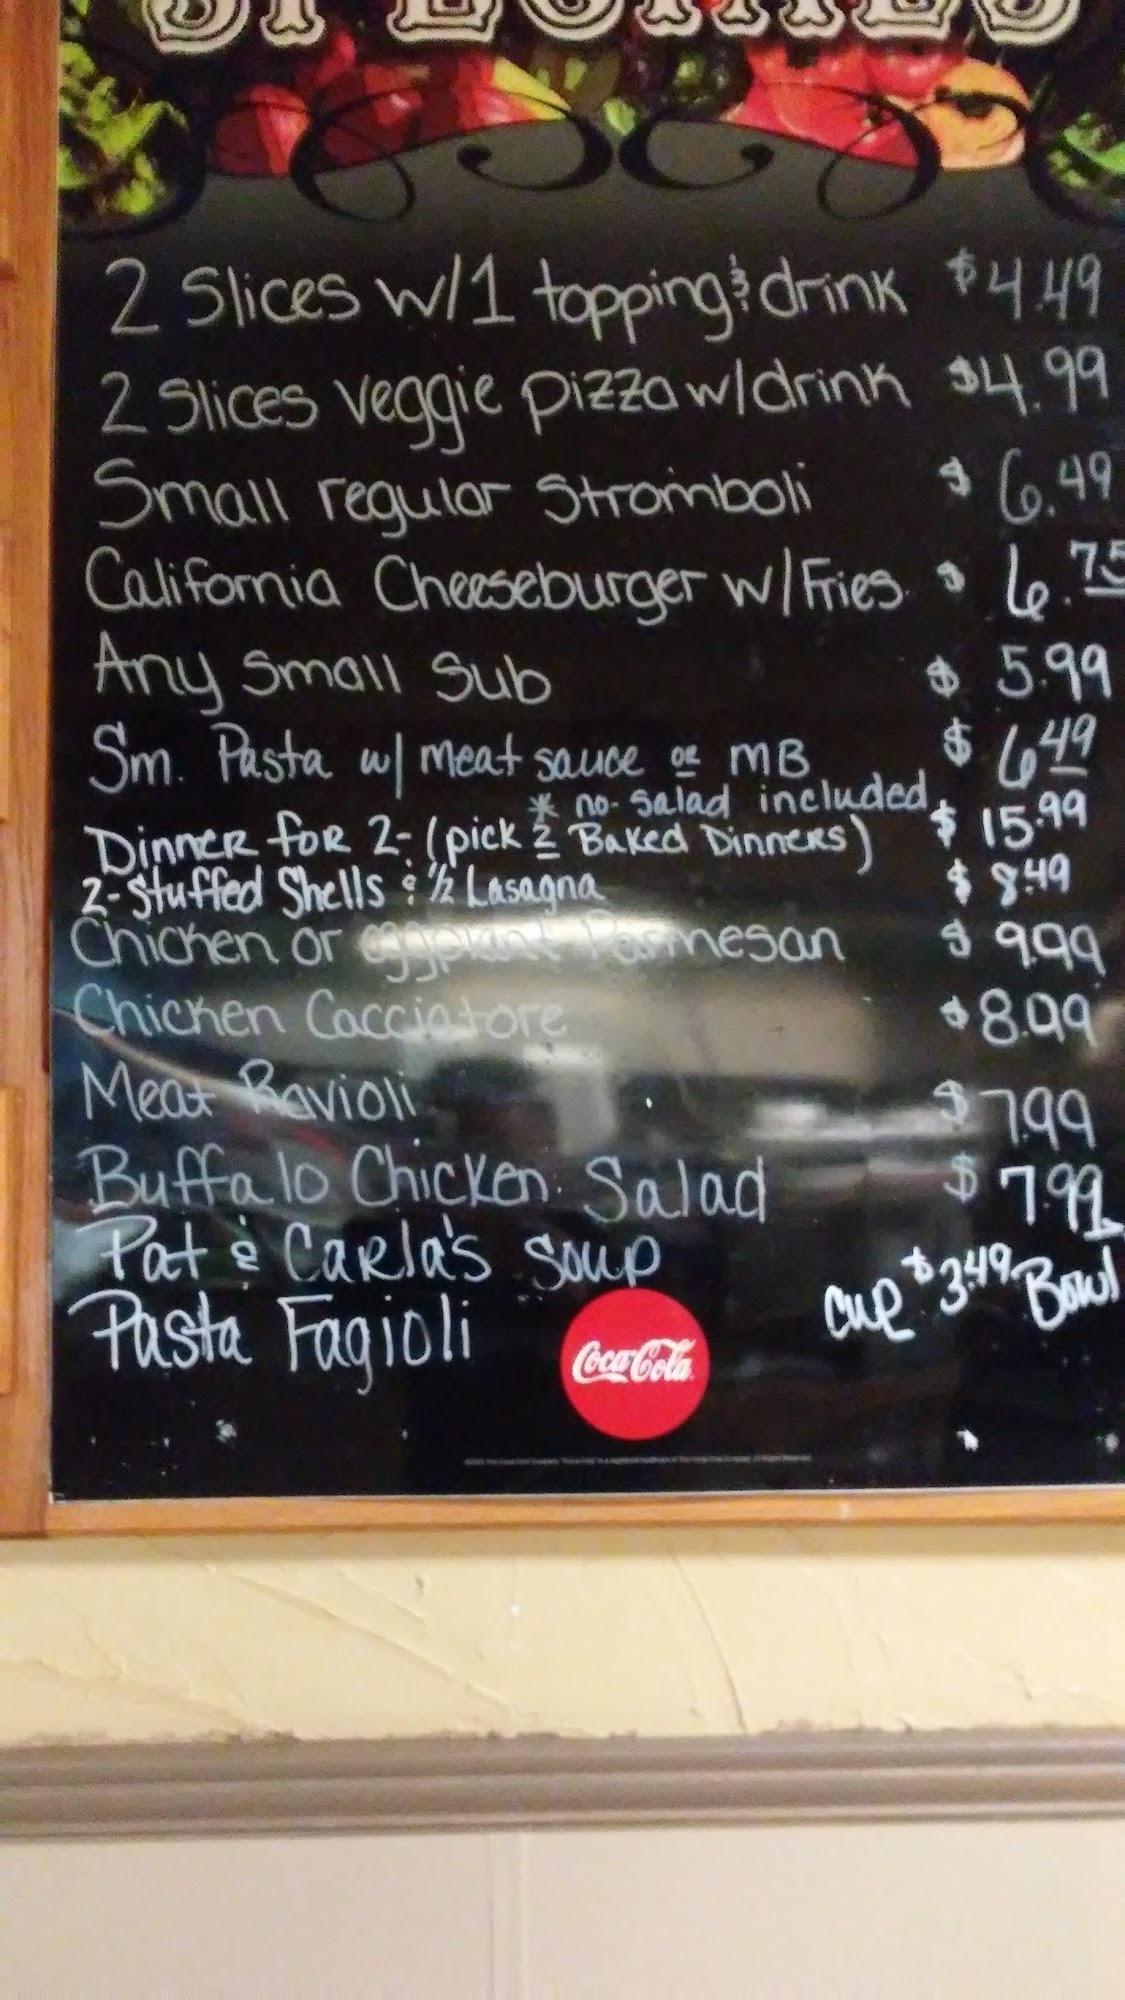 SPECIALS
2 Slices w/1 topping & drink $4.49
2 Slices veggie pizza w/drink $4.99
Small regular Stromboli $6.49
California Cheeseburger w/Fries $6.75
Any Small Sub $5.99
Sm. Pasta w/ meat sauce or MB $6.49
* no salad included
Dinner for 2- (pick 2 Baked Dinners) $15.99
2-Stuffed Shells & 1/2 Lasagna $8.49
Chicken or eggplant Parmesan $9.99
Chicken Cacciatore $8.99
Meat Ravioli $7.99
Buffalo Chicken Salad $7.99
Pat & Carla's Soup
Cup $3.49 Bowl
Pasta Fagioli
Coca-Cola